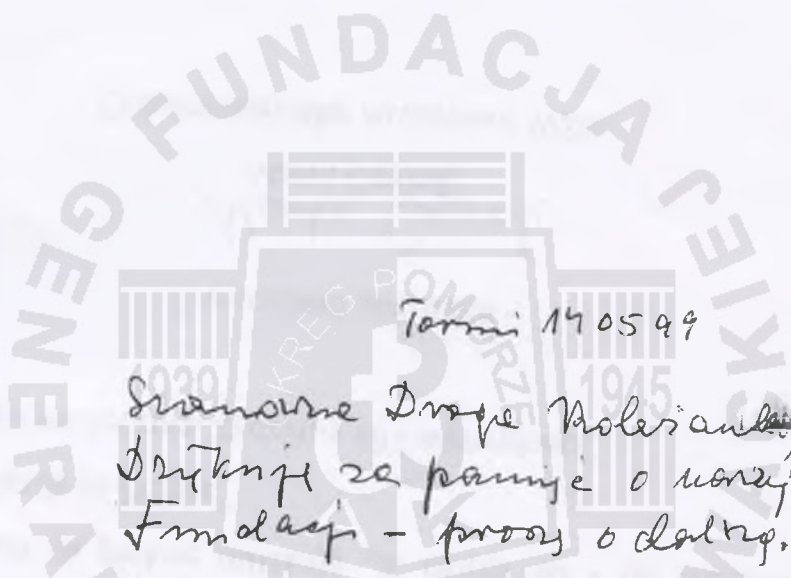 FUNDACJA
GENERA
JEJ
SKI
WA
OKRĘG POMORZE
AK
1939
1945
Toruń 14 05 99
Szanowna Droga Koleżanko,
Dziękuję za pamięć o naszej
Fundacji - proszę o dalszą.